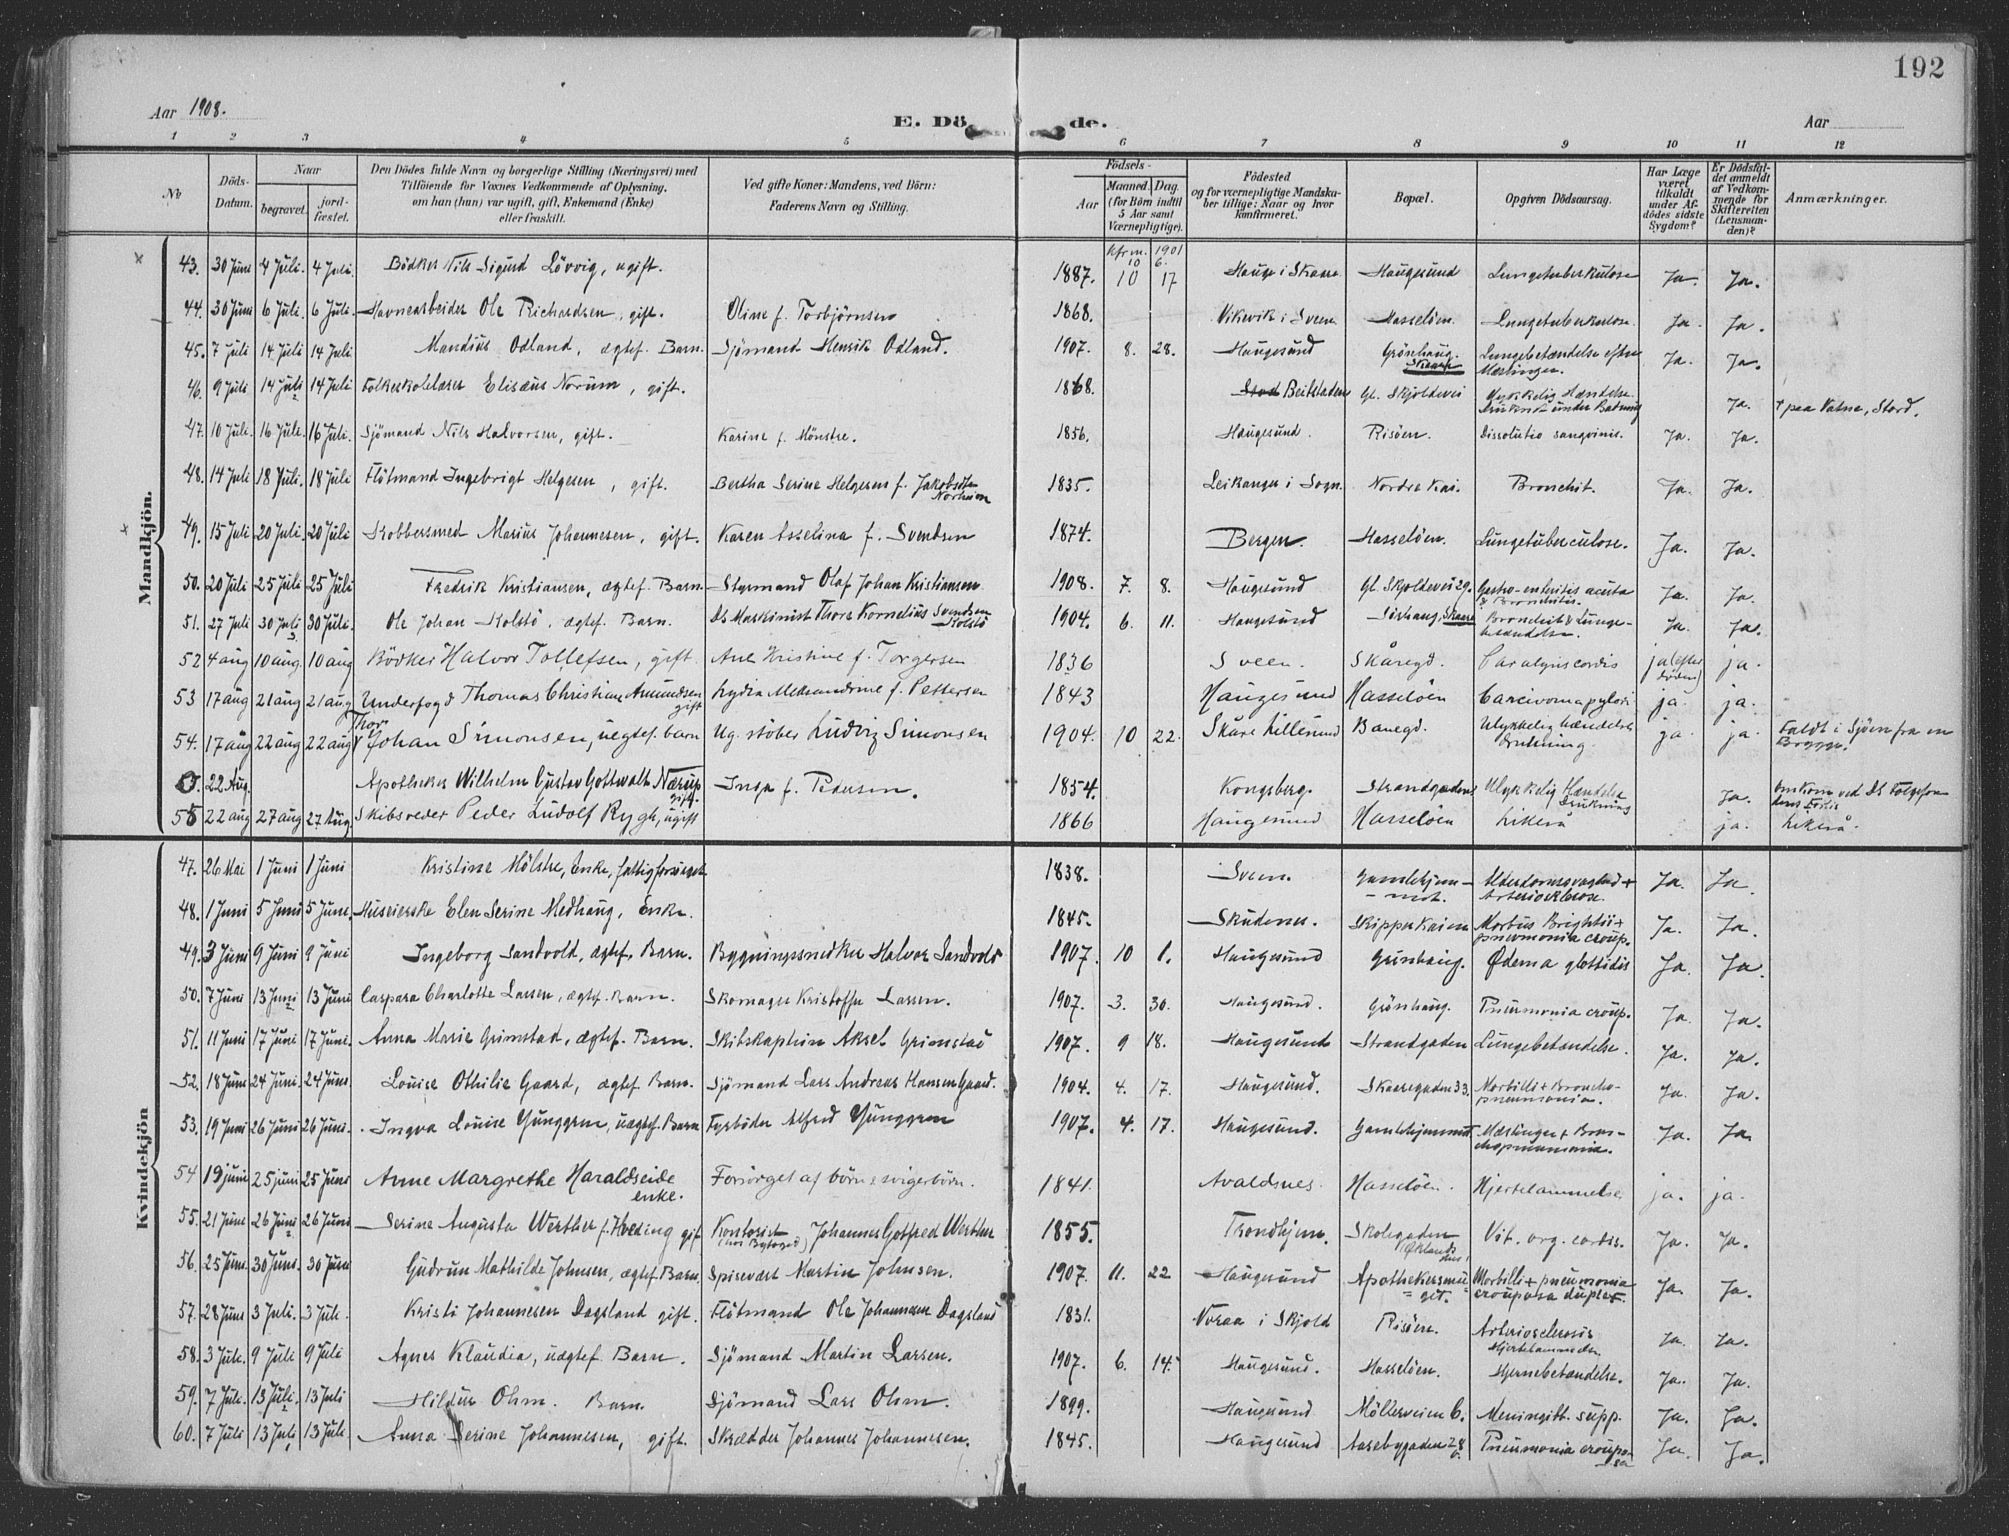 192
Aar 1908.
E. Döde.
Aar
1 2 3 4 5 6 7 8 9 10 11 12
No
Döds-Datum.
Naar
begravet.
jord-fæstet.
Den Dödes fulde Navn og borgerlige Stilling (Næringsvei) med
Tilföiende for Voxnes Vedkommende af Oplysning,
om han (hun) var ugift, gift, Enkemand (Enke)
eller fraskilt.
Ved gifte Koner: Mandens, ved Börn:
Faderens Navn og Stilling.
Födsels-
Aar
Maaned. Dag.
(for Börn indtil
5 Aar samt
Værnepligtige).
Födested
og for værnepligtige Mandska-
ber tillige: Naar og hvor
konfirmeret.
Bopæl.
Opgiven Dödsaarsag.
Har Læge
været
tilkaldt
under Af-
dödes sidste
Sygdom?
Er Dödsfal-
det anmeldt
af Vedkom-
mende for
Skifteretten
(Lensman-
den)?
Anmærkninger.
Mandkjön.
43. 30 Juni 4 Juli. 4 Juli. Bödker Nils Sigurd Lövvig, ugift. 1887. kfrm. 10 1901 6. 10 17 Hauge i Skaare Haugesund Lungetuberkulose Ja. Ja.
44. 30 Juni 6 Juli. 6 Juli. Havnearbeider Ole Richardsen, gift. Oline f. Torbjörnsen 1868. Vikevik i Sveen Hasselöen. Lungetuberkulose. Ja. Ja.
45. 7 Juli 14 Juli 14 Juli Mandius Odland, ægtef. Barn. Sjömand Henrik Odland. 1907. 8. 28. Haugesund Grönhaug. Skaare Lungebetændelse efter Mæslinger. Ja. Ja.
46. 9 Juli 14 Juli 14 Juli Folkeskolelærer Elisæus Norum, gift. 1868. Stod Beitstaden Gl. Skjoldevei Ulykkelig Hændelse Druknet under Badning Ja. † paa Vatne, Stord.
47. 10 Juli. 16 Juli. 16 Juli. Sjömand Nils Halvorsen, gift. Karine f. Mönstre. 1856. Haugesund. Risöen. Dissolutio sangvinis. Ja. Ja.
48. 14 Juli 18 Juli. 18 Juli Flötmand Ingebrigt Helgesen, gift. Bertha Serine Helgesen f. Jakobsdtr Norheim 1835. Leikanger i Sogn. Nordre Kai. Bronchit. Ja. Ja.
49. 15 Juli 20 Juli. 20 Juli Kobbersmed Marius Johannesen, gift. Karen Asselina f. Svendsen 1874. Bergen. Hasselöen. Lungetuberculose. Ja. Ja.
50. 20 Juli 25 Juli 25 Juli Fredrik Kristiansen, ægtef. Barn Styrmand Olaf Johan Kristiansen 1908. 7. 8. Haugesund Gl. Skjoldevei 29. Gastro-enteritis acuta & Bronchitis. Ja. Ja.
51. 27 Juli 30 Juli 30 Juli. Ole Johan Kolstö, ægtef. Barn. Ds Maskinist Thore Kornelius Svendsen Kolstö 1904. 6. 11. Haugesund Sörhaug, Skaare Bronchit & Lunge-betændelse. Ja. Ja.
52 4 aug 10 aug. 10 aug Bödker Halvor Tollefsen, gift Ane Kristine f. Torgersen 1836 Sveen. Skåregd. Paralysis cordis ja (efter döden) ja.
53 17 aug 21 aug 21 aug Underfogd Thomas Christian Amundsen gift Lydia Aleksandrine f. Pettersen 1843 Haugesund Hasselöen Carcinoma pylori ja. ja.
54. 17 aug 22 aug 22 aug Thor Johan Simonsen, uegtef. barn Ug. støber Ludvig Simonsen 1904. 10 22. Skåre Lillesund Banegd. Ulykkelig hændelse drukning ja. ja. Faldt i Sjöen fra en Brygge.
22 Aug. Apotheker Wilhelm Gustav Gottwalt Nærup gift. Inga f. Pedersen. 1854. Kongsberg. Strandgaden Ulykkelig Hændelse Drukning Ja. Omkom ved DS Folgefon-dens Forlis
55 22 aug 27 aug 27 Aug. Skibsreder Peder Ludolf Rygh, ugift 1866 Haugesund Hasselöen Likeså ja. Likeså.
Kvindekjön
47. 26 Mai 1 Juni 1 Juni Kristine Mölstre, Enke, fattigforsörget 1838. Sveen. Gamlehjem-met. Alderdomssvaghed + Arteriosklerose. Ja. Ja.
48. 1 Juni 5 Juni 5 Juni. Huseierske Elen Serine Medhaug, Enke. 1845. Skudenes. Skipperkaien Morbus Brightii + pneumonia croup. Ja. Ja.
49. 3 Juni 9 Juni 9 Juni Ingeborg Sandvold, ægtef. Barn. Bygningssnedker Halvor Sandvold 1907. 10 1. Haugesund Grönhaug. Ødema glottidis Ja. Ja.
50. 7 Juni 13 Juni 13 Juni Caspara Charlotte Larsen, ægtef. Barn. Skomager Kristoffer Larsen. 1907. 3. 30. Haugesund. Grönhaug. Pneumonia croup. Ja. Ja.
51. 11 Juni 17 Juni 17 Juni. Anna Marie Grimstad, ægtef. Barn. Skibskaptein Aksel Grimstad 1907. 9 18. Haugesund Strandgaden Lungebetændelse. Ja. Ja.
52. 18 Juni 24 Juni. 24 Juni. Louise Othilie Gaard, ægtef. Barn. Sjömand Lars Andreas Hansen Gaard. 1904. 4. 17. Haugesund. Skaaregaden 33. Morbilli + Broncho-pneumonia. Ja. Ja.
53. 19 Juni 26 Juni 26 Juni. Ingva Louise Yünggren, uægtef. Barn Fyrböder Alfred Yünggren 1907. 4. 17. Haugesund. Gamlehjemmet Mæslinger + Bron-chopneumonia. Ja. Ja.
54 19 juni 25 juni 25 Juni Anne Margrethe Haraldseide enke. Forsörget af börn & svigerbörn. 1841. Avaldsnes. Hasselöen. Hjertelammelse ja. ja.
55. 21 Juni 26 Juni 26 Juni Serine Augusta Werther f. Heding gift Kontorist (hos Byfoged) Johannes Gotfred Werther 1855. Trondhjem. Skolegaden Öklands Hus. Vit. org. cordis. Ja. Ja.
56. 25 Juni. 30 Juni. 30 Juni Gudrun Mathilde Johnsen, ægtef. Barn. Spisevært Martin Johnsen. 1907. 11. 22 Haugesund Apothekersmu-get. Morbilli + pneumonia crouposa duplex. Ja. Ja.
57. 28 Juni 3 Juli. 3 Juli. Kristi Johannesen Dagsland gift. Flötmand Ole Johannesen Dagsland 1831. Vores i Skjold Risöen. Arteriosclerosis Hjertelammelse Ja. Ja.
58. 3 Juli. 9 Juli 9 Juli Agnes Klaudia, uægtef. Barn. Sjömand Martin Larsen. 1907. 6. 14. Haugesund. Hasselöen. Hjernebetændelse. Ja. Ja.
59. 7 Juli. 13 Juli. 13 Juli Hildur Ohm. Barn. Sjömand Lars Ohm. 1899. Haugesund Möllerveien 6. Meningitt. supp. Ja. Ja.
60. 7 Juli 13 Juli 13 Juli. Anna Serine Johannesen, gift. Skrædder Johannes Johannesen. 1845. Haugesund Aasebygaden 28 Pneumonia croupo-sa Ja. Ja.